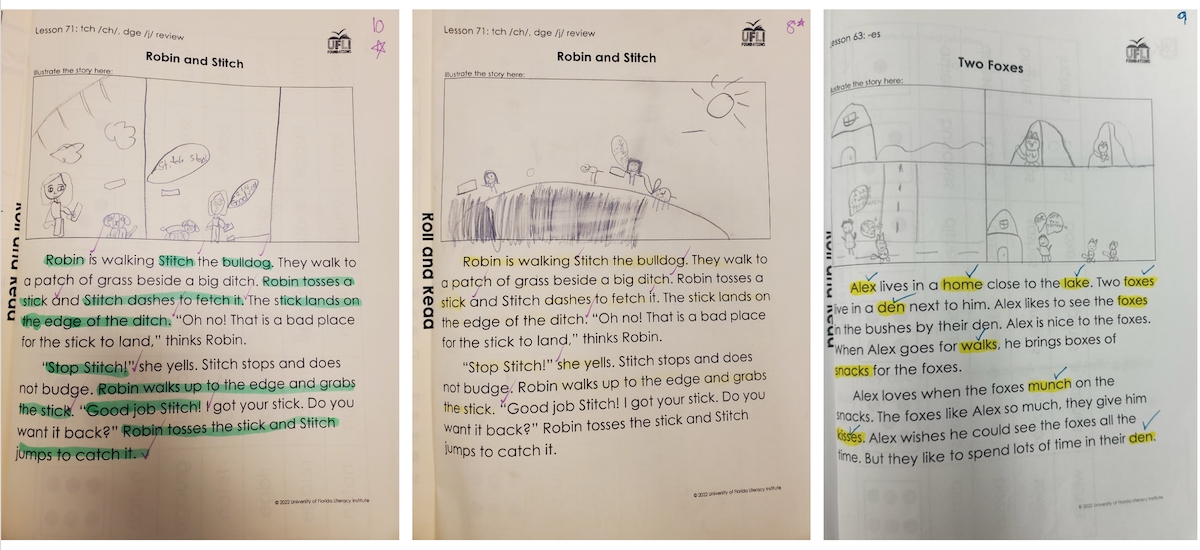 Lesson 71: tch /ch/, dge /j/ review
10
UFLI
FOUNDATIONS
Robin and Stitch
Illustrate the story here:
Roll and Read
Robin is walking Stitch the bulldog. They walk to
a patch of grass beside a big ditch. Robin tosses a
stick and Stitch dashes to fetch it. The stick lands on
the edge of the ditch. "Oh no! That is a bad place
for the stick to land," thinks Robin.
"Stop Stitch!" she yells. Stitch stops and does
not budge. Robin walks up to the edge and grabs
the stick. "Good job Stitch! I got your stick. Do you
want it back?" Robin tosses the stick and Stitch
jumps to catch it.
© 2022 University of Florida Literacy Institute
Lesson 71: tch /ch/, dge /j/ review
8*
UFLI
FOUNDATIONS
Robin and Stitch
Illustrate the story here:
Roll and Read
Robin is walking Stitch the bulldog. They walk to
a patch of grass beside a big ditch. Robin tosses a
stick and Stitch dashes to fetch it. The stick lands on
the edge of the ditch. "Oh no! That is a bad place
for the stick to land," thinks Robin.
"Stop Stitch!" she yells. Stitch stops and does
not budge. Robin walks up to the edge and grabs
the stick. "Good job Stitch! I got your stick. Do you
want it back?" Robin tosses the stick and Stitch
jumps to catch it.
© 2022 University of Florida Literacy Institute
9
esson 63: -es
UFLI
FOUNDATIONS
Two Foxes
ustrate the story here:
Alex lives in a home close to the lake. Two foxes
live in a den next to him. Alex likes to see the foxes
in the bushes by their den. Alex is nice to the foxes.
When Alex goes for walks, he brings boxes of
snacks for the foxes.
Alex loves when the foxes munch on the
snacks. The foxes like Alex so much, they give him
kisses. Alex wishes he could see the foxes all the
time. But they like to spend lots of time in their den.
© 2022 University of Florida Literacy Institute